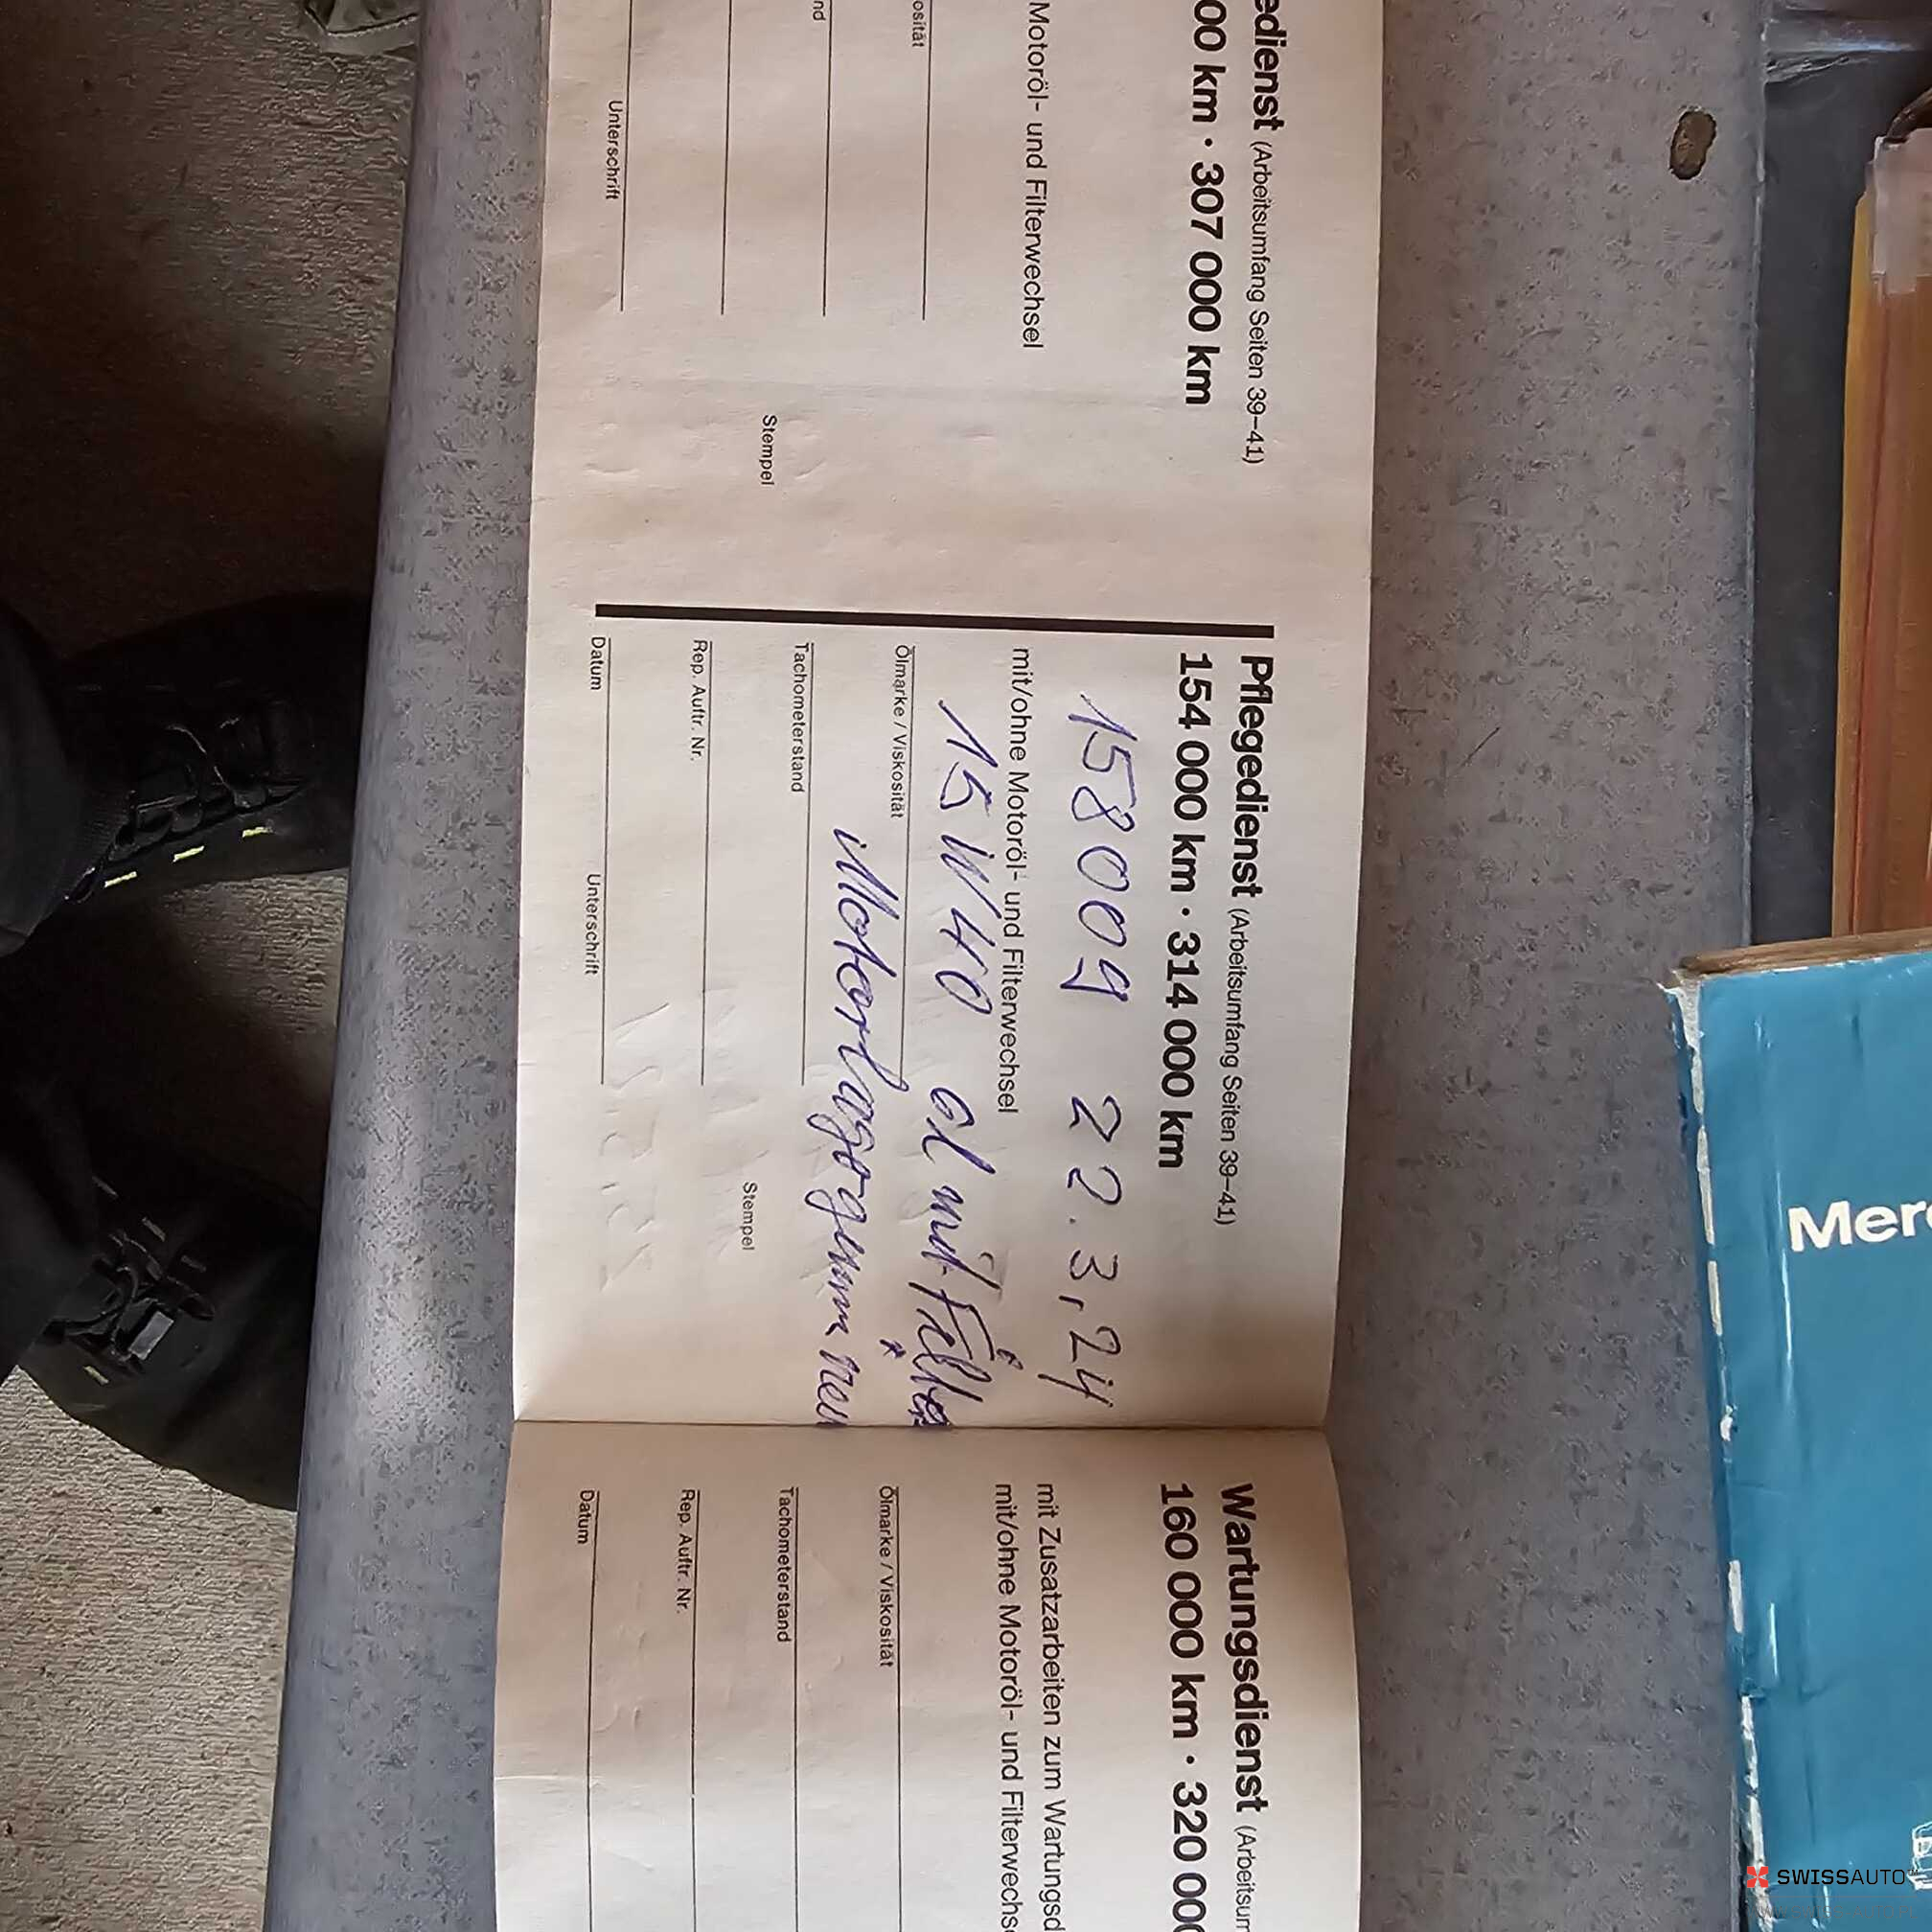 edienst (Arbeitsumfang Seiten 39–41)
00 km · 307 000 km
Motoröl- und Filterwechsel
osität
nd
Stempel
Unterschrift
Pflegedienst (Arbeitsumfang Seiten 39–41)
154 000 km · 314 000 km
158009 22.3,24
mit/ohne Motoröl- und Filterwechsel
15W40 öl mit
Ölmarke / Viskosität
neu
Tachometerstand
Rep. Auftr. Nr.
Stempel
Datum
Unterschrift
Wartungsdienst (Arbeitsum
160 000 km · 320 000
mit Zusatzarbeiten zum Wartungsd
mit/ohne Motoröl- und Filterwechse
Ölmarke / Viskosität
Tachometerstand
Rep. Auftr. Nr.
Datum
Merc
SWISSAUTO